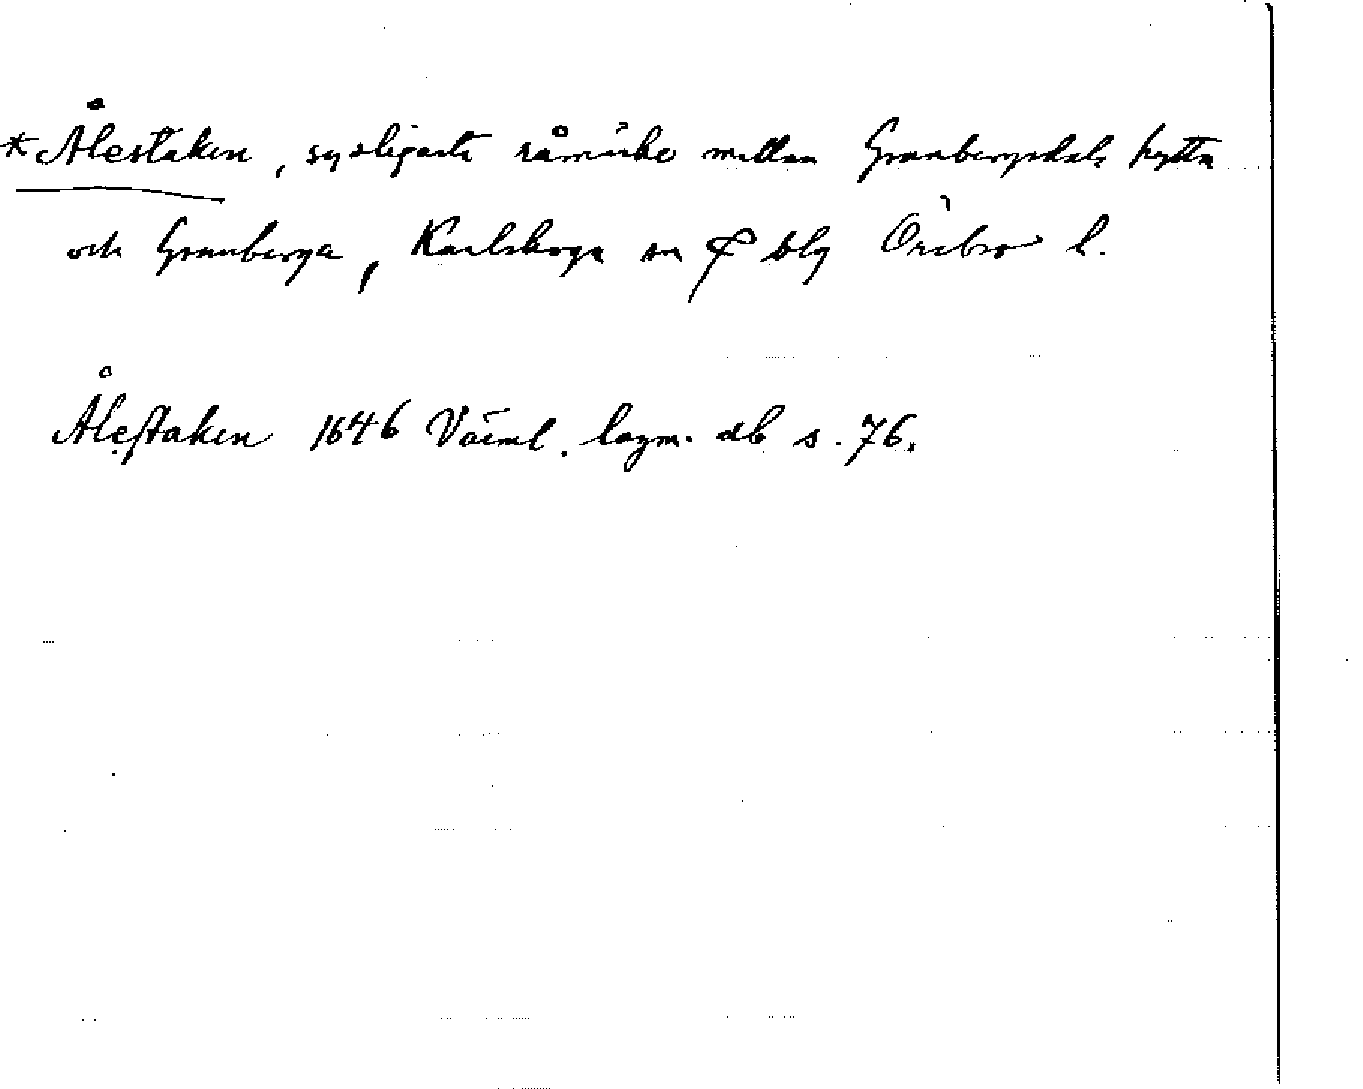 *Ålestaken, sydligaste råmärke mellan Granbergsdals hytta
och Granberga, Karlskoga sn blg Örebro l.
Ålestaken 1646 Värml. lagm. db s. 76.